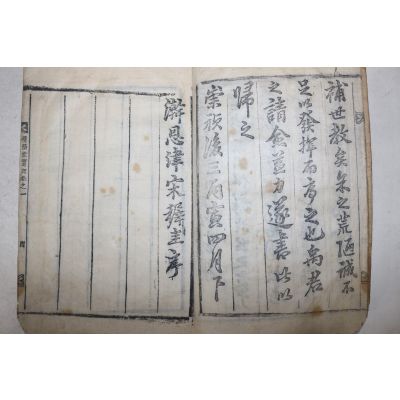 補世教矣余之荒陋誠不
足以發揮而序之也禹君
之請愈益力遂書此以
歸之
崇禎後三丙寅四月下
澣恩津宋穉圭序